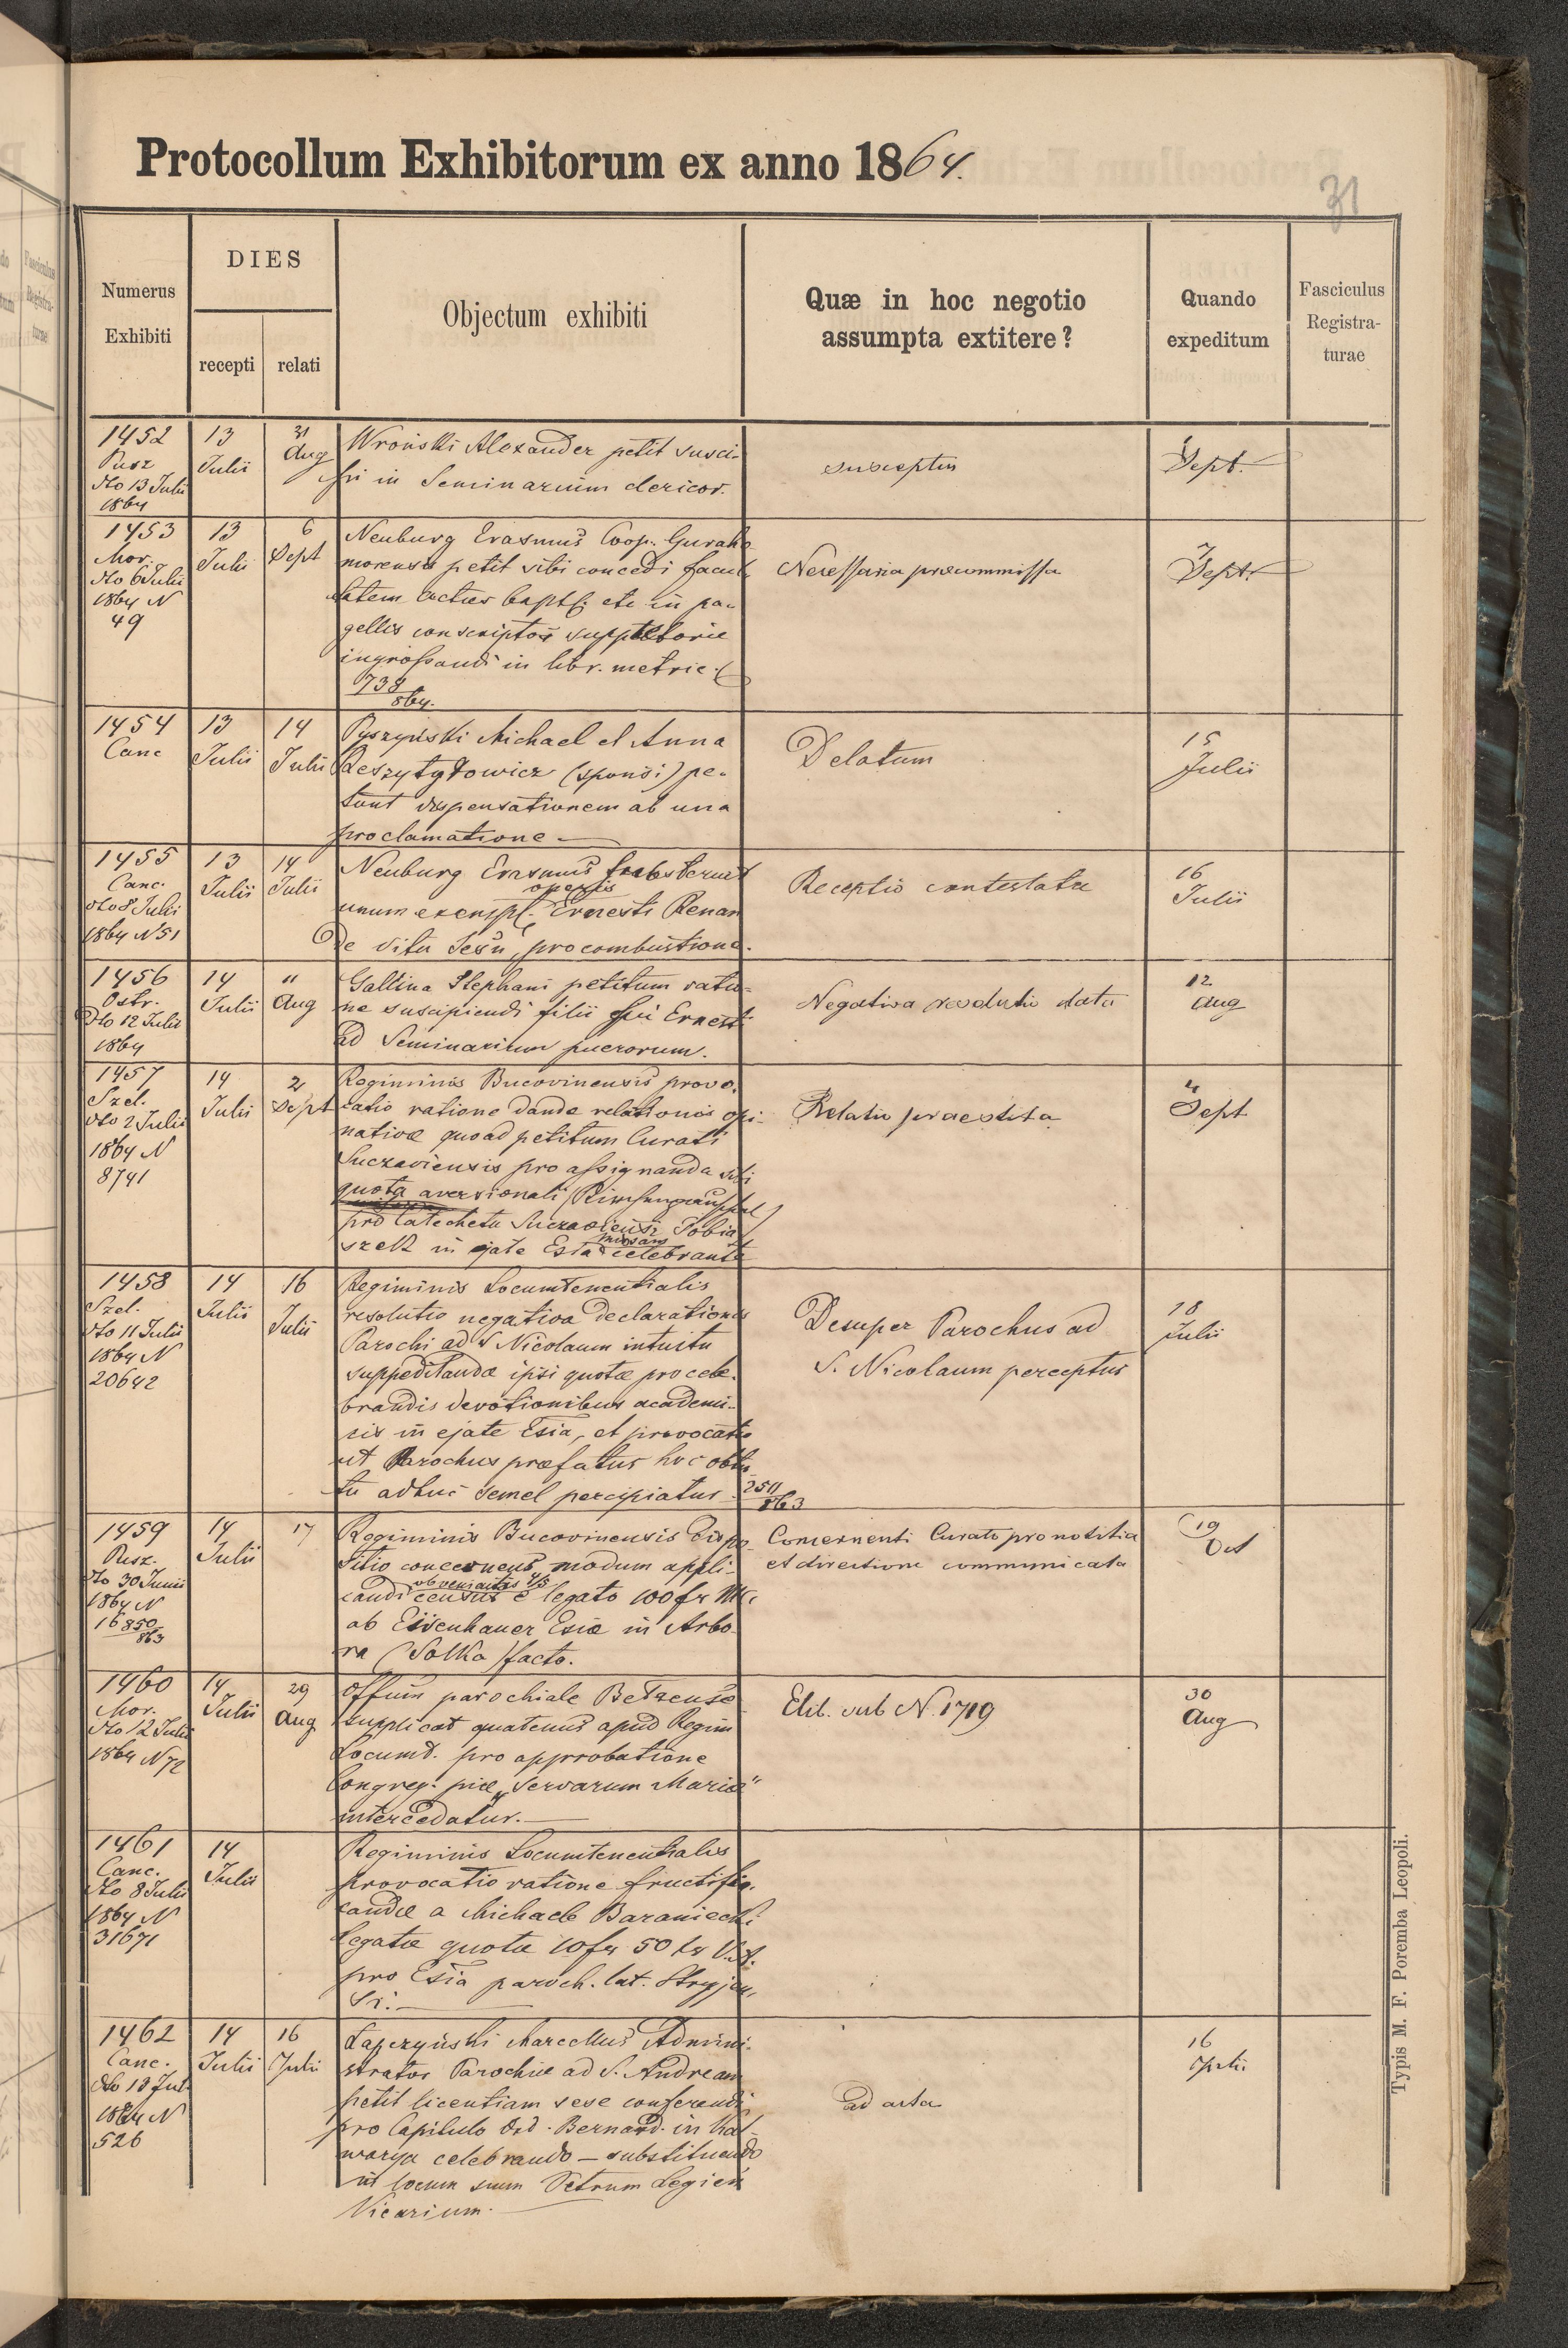 Protocollum Exhibitorum ex anno 1864.
31
Numerus
Exhibiti
DIES
recepti
relati
Objectum exhibiti
Quæ in hoc negotio
assumpta extitere?
Quando
expeditum
Fasciculus
Registra-
turae
1452
Pusz
dto 13 Julii
1864
13
Julii
31
Aug
Wroński Alexander petit susci-
pi in Seminarium clericor.
susceptus
1
Sept.
1453
Mor.
dto 6 Julii
1864 N
49
13
Julii
6
Sept
Neuburg Erasmus Coop. Gurahu-
morensis petit sibi concedi facul-
tatem actus bapt. etc in pa-
gellis conscriptos suppletorie
ingrossandi in libr. metric.
738
864.
Necessaria praecommissa
7
Sept.
1454
Canc
13
Julii
14
Julii
Pyszyński Michael et Anna
Reszytyłowicz (sponsi) pe-
tunt dispensationem ab una
proclamatione —
Delatum
15
Julii
1455
Canc.
dto 8 Julii
1864 N 51
13
Julii
14
Julii
Neuburg Erasmus substernit
operis
unum exempl. Ernesti Renan
De vita Jesu, pro combustione.
Receptio contestata
16
Julii
1456
Ostr.
Dto 12 Julii
1864
14
Julii
11
Aug
Galtina Stephani petitum ratio-
ne suscipiendi filii sui Ernesti
ad Seminarium puerorum.
Negativa resolutio data
12
Aug
1457
Szel.
dto 2 Julii
1864 N
8741
14
Julii
2
Sept
Regiminis Bucovinensis provo-
catio ratione dandæ relationis opi-
nativæ quoad petitum Curati
Suczaviensis pro assignanda sibi
quota aversionali
pro Catecheta Suczaviensi Tobia
missam
szek in ejate Esia celebrante
Relatio praestita
4
Sept
1458
Szel.
dto 11 Julii
1864 N
20642
14
Julii
16
Julii
Regiminis Locumtenentialis
resolutio negativa declarationis
Parochi ad S Nicolaum intuitu
suppeditandæ ipsi quotæ pro cele-
brandis devotionibus academi-
cis in ejate Esia, et provocatio
ut Parochus præfatus hoc obtu-
tu adhuc semel percipiatur
2511
863
Desuper Parochus ad
S. Nicolaum perceptus
18
Julii
1459
Pusz.
dto 30 Junii
1864 N
16850
863
14
Julii
17
Regiminis Bucovinensis Dispo-
sitio concernens modum appli-
obvenientis 4/5
candi census e legato 100 fr MC
ab Eisenhauer Esiæ in Arbo-
ra (Solka) facto.
Concernenti Curato pro notitia
et directione communicata
19
Oct
1460
Mor.
dto 12 Julii
1864 N 72
14
Julii
29
Aug
Offium parochiale Betzense
supplicat quatenus apud Regim
Locumt. pro approbatione
Congreg. piæ „Servarum Mariæ"
intercedatur. —
Elib. sub N. 1719
30
Aug
1461
Canc.
dto 8 Julii
1864 N
31671
14
Julii
Regiminis Locumtenentialis
provocatio ratione fructifi-
candæ a Michaele Baraniecki
legatæ quotæ 10 fr 50 kr V.A.
pro Esia paroch. lat. Stryjen-
si. —
1462
Canc.
dto 13 Jul.
1864 N
526
14
Julii
16
Julii
Łapczyński Marcellus Admini-
strator Parochiæ ad S. Andream
petit licentiam sese conferendi
pro Capitulo Ord. Bernard. in Kal-
warya celebrando — substituendo
in locum suum Petrum Legień
Vicarium. —
ad acta
16
Julii
Typis M. F. Poremba Leopoli.